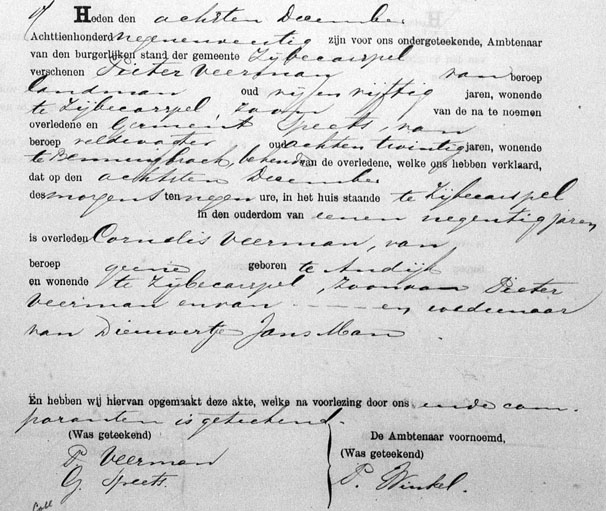 Heden den achtsten December
Achttienhonderd negenenveertig zijn voor ons ondergeteekende, Ambtenaar
van den burgerlijken stand der gemeente Zijbecarspel
verschenen Pieter Veerman van beroep
landman oud vijf en vijftig jaren, wonende
te Zijbecarspel, zoon van de na te noemen
overledene en Germent Speets, van
beroep veldwachter oud achten twintig jaren, wonende
te Benningbroek, bekende van de overledene, welke ons hebben verklaard,
dat op den achtsten December
des morgens ten negen ure, in het huis staande te Zijbecarspel
in den ouderdom van eenen negentig jaren
is overleden Cornelis Veerman, van
beroep geene geboren te Andijk
en wonende te Zijbecarspel, zoon van Pieter
Veerman en van en weduenaar
van Dieuwertje Jans Man
En hebben wij hiervan opgemaakt deze akte, welke na voorlezing door ons ende com-
paranten is geteekend.
(Was geteekend)
P. Veerman
G. Speets.
De Ambtenaar voornoemd,
(Was geteekend)
P. Winkel.